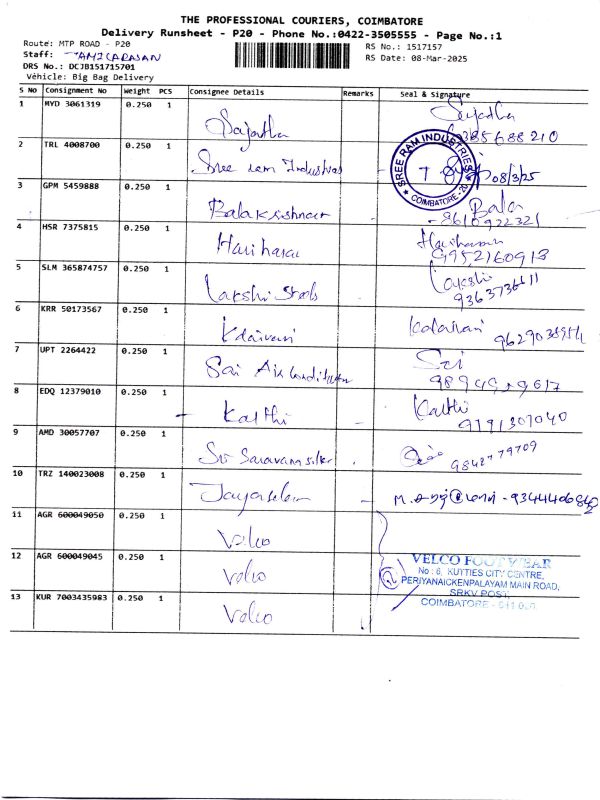 THE PROFESSIONAL COURIERS, COIMBATORE
Delivery Runsheet - P20 - Phone No.:0422-3505555 - Page No.:1
Route: MTP ROAD - P20 RS No.: 1517157
Staff: TAMILARASAN RS Date: 08-Mar-2025
DRS No.: DCJB151715701
Vehicle: Big Bag Delivery
S No Consignment No Weight PCS Consignee Details Remarks Seal & Signature
1 MYD 3061319 0.250 1 Sajatha Sujatha
6385688210
2 TRL 4008700 0.250 1 Sree ram Industries SREE RAM INDUSTRIES COIMBATORE 08/3/25
3 GPM 5459888 0.250 1 Balakrishnan Bala
8610922321
4 HSR 7375815 0.250 1 Hariharan Hariharan
9952160918
5 SLM 365874757 0.250 1 Lakshi Steels Lakshi
9363736611
6 KRR 50173567 0.250 1
7 UPT 2264422 0.250 1 Sai Air Conditioner Sai
8 EDQ 12379010 0.250 1 - Karthi Karthi
9191307040
9 AMD 30057707 0.250 1 Sri
9842779709
10 TRZ 140023008 0.250 1
11 AGR 600049050 0.250 1 Velco
12 AGR 600049045 0.250 1 Velco VELCO FOOTWEAR
No : 6, KUTTIES CITY CENTRE,
PERIYANAICKENPALAYAM MAIN ROAD,
SRKV POST,
COIMBATORE -
13 KUR 7003435983 0.250 1 Velco